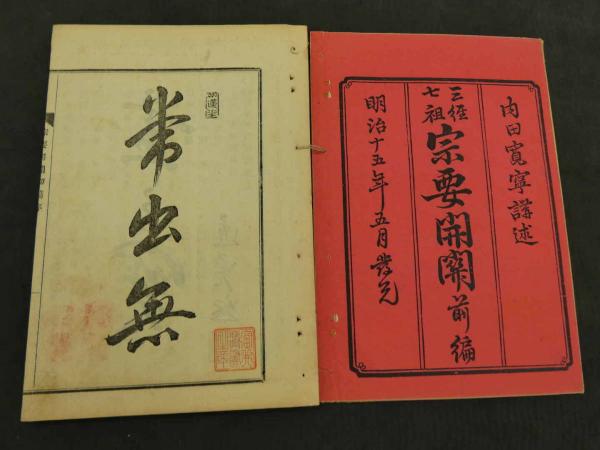 内田寛寧講述
三經
七祖
宗要開關前編
明治十五年五月發兌
常出無